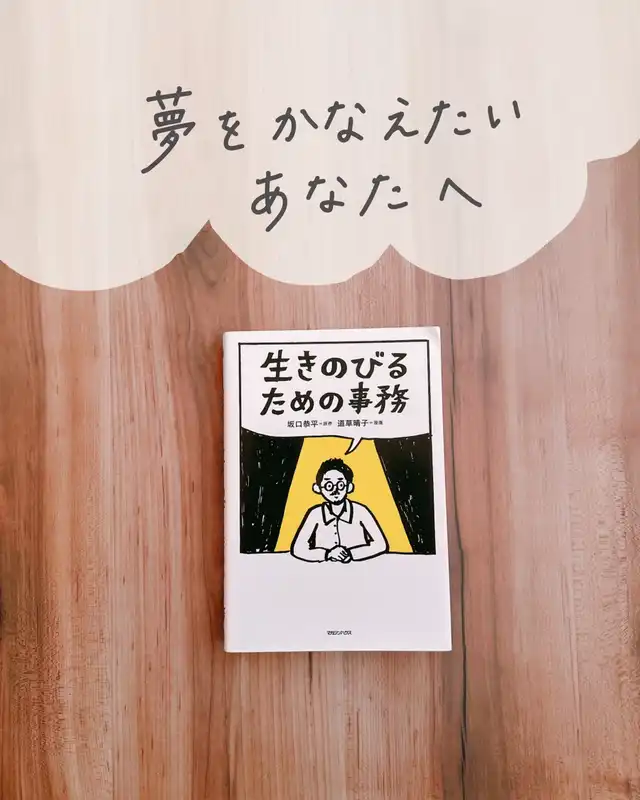 夢をかなえたい
あなたへ
生きのびる
ための事務
坂口恭平=原作 道草晴子=漫画
マガジンハウス